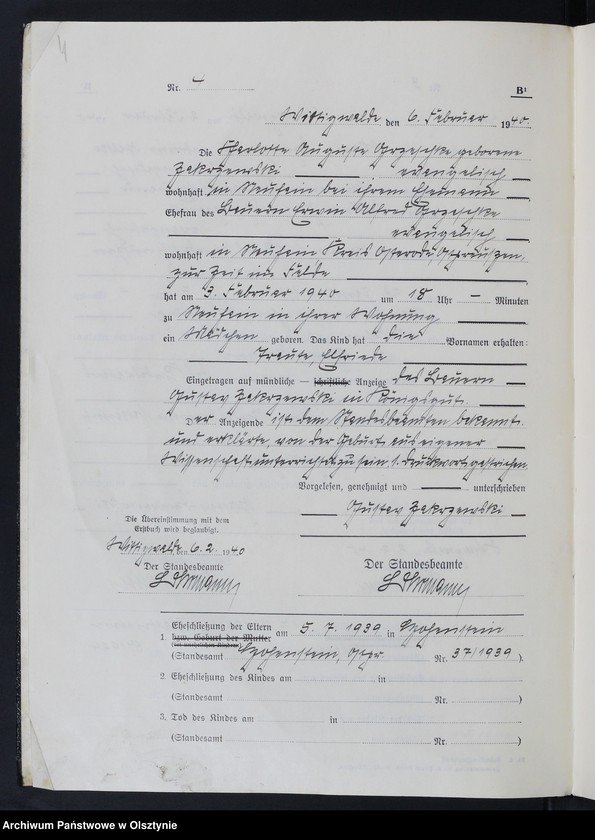 4
Nr. 4
B¹
Wittigwalde, den 6. Februar 1940.
Die Charlotte Auguste Grzeschke geborene
Zakrzewski, evangelisch
wohnhaft in Neuhain bei ihrem Ehemann
Ehefrau des Bauern Erwin Alfred Grzeschke
evangelisch,
wohnhaft in Neuhain Kreis Osterode, Ostpreußen,
zur Zeit im Felde
hat am 3. Februar 1940 um 18 Uhr — Minuten
zu Neuhain in ihrer Wohnung
ein Mädchen geboren. Das Kind hat die Vornamen erhalten:
Traute, Elfriede
Eingetragen auf mündliche — schriftliche Anzeige des Bauern
Gustav Zakrzewski in Königsgut.
Der Anzeigende ist dem Standesbeamten bekannt
und erklärte, von der Geburt aus eigener
Wissenschaft unterrichtet zu sein. 1 Druckwort gestrichen
Vorgelesen, genehmigt und unterschrieben
Gustav Zakrzewski
Die Übereinstimmung mit dem
Erstbuch wird beglaubigt.
Wittigwalde, den 6.2. 1940
Der Standesbeamte
Der Standesbeamte
Eheschließung der Eltern
1. bzw. Geburt der Mutter am 5. 7. 1939 in Hohenstein
(bei unehelichen Kindern)
(Standesamt Hohenstein, Ostpr. Nr. 37/1939).
2. Eheschließung des Kindes am in
(Standesamt Nr. )
3. Tod des Kindes am in
(Standesamt Nr. )
Archiwum Państwowe w Olsztynie